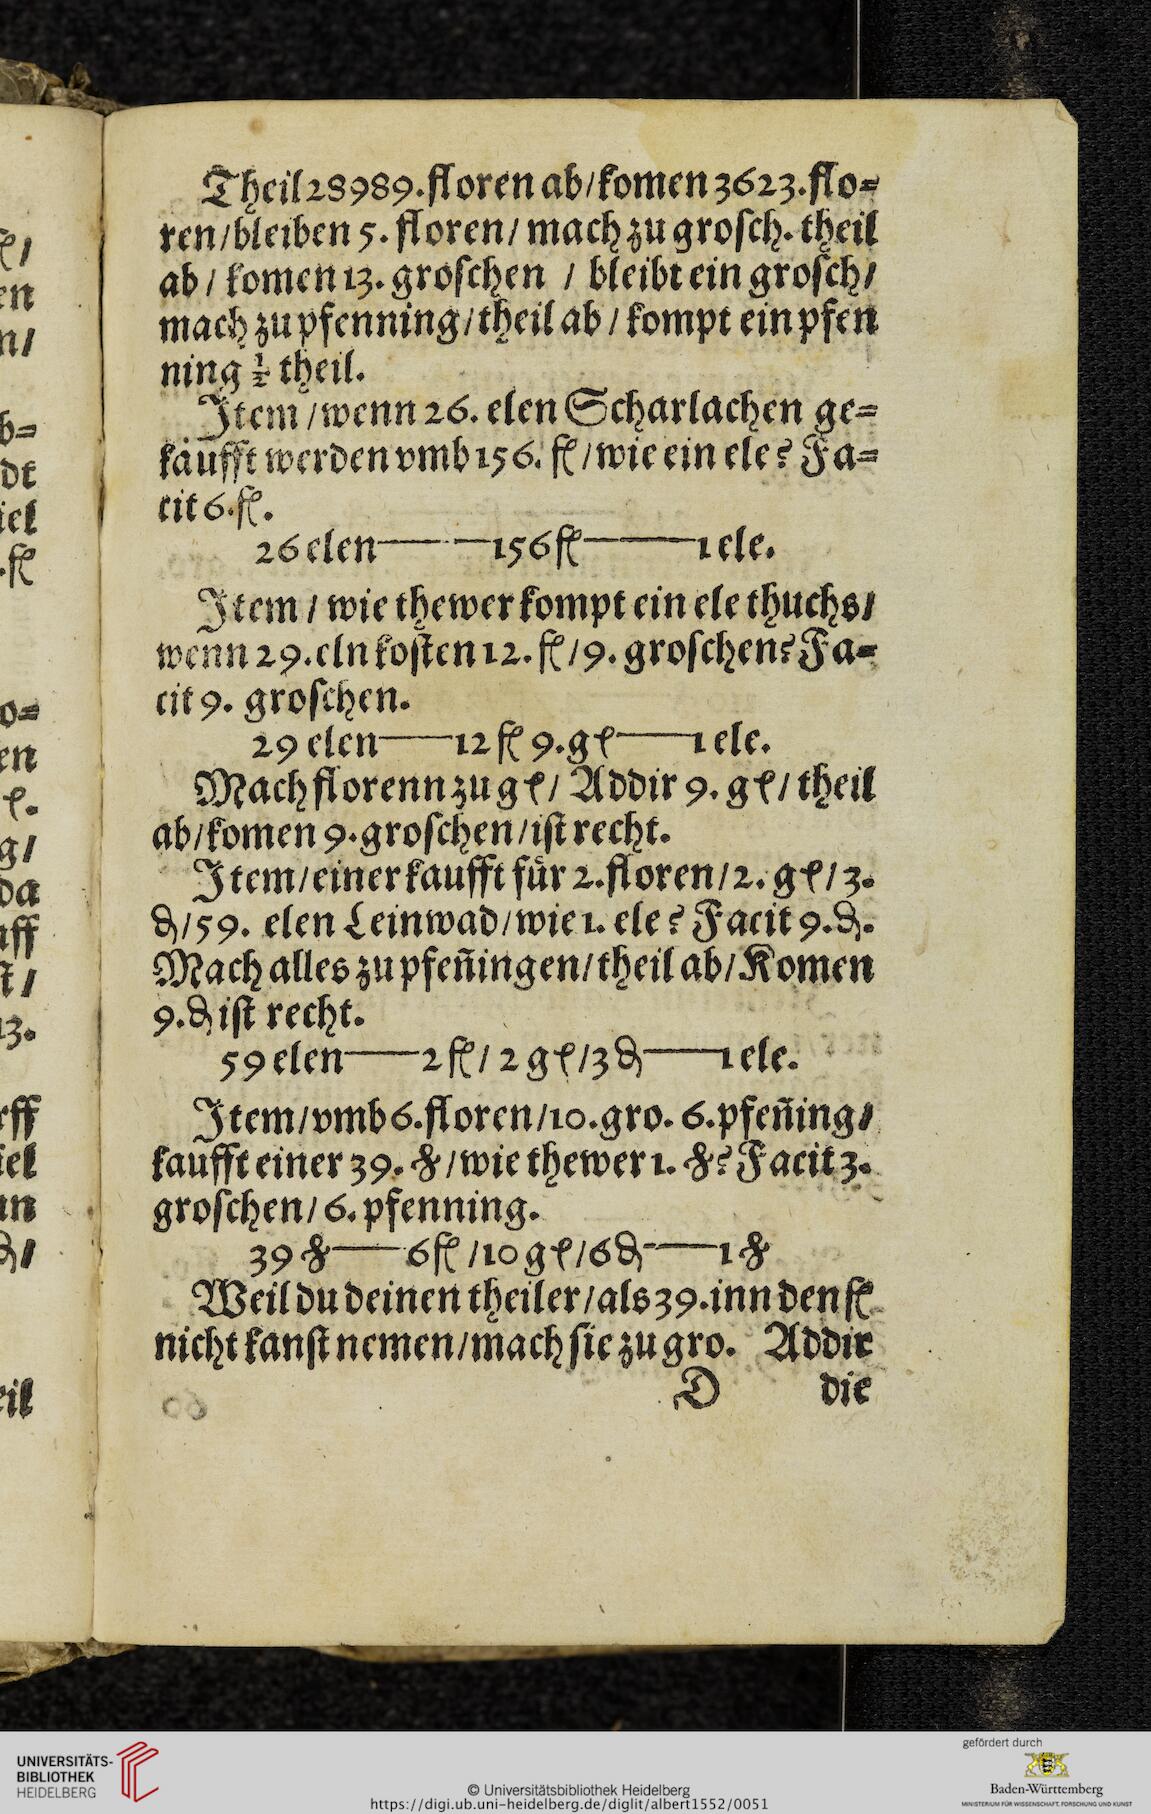 Theil 28989. floren ab/komen 3623. flo=
ren/bleiben 5. floren/ mach zu grosch. theil
ab/ komen 13. groschen / bleibt ein grosch/
mach zu pfenning/theil ab/ kompt ein pfen
ning ½ theil.
Item/wenn 26. elen Scharlachen ge=
käufft werden vmb 156. fl/wie ein ele? Fa=
cit 6. fl.
26 elen—— —156 fl———1 ele.
Item/ wie thewer kompt ein ele thuchs/
wenn 29. eln kosten 12. fl/9. groschen? Fa=
cit 9. groschen.
29 elen——12 fl 9. gl——1 ele.
Mach florenn zu gl/ Addir 9. gl/ theil
ab/komen 9. groschen/ist recht.
Item/einer kaufft für 2. floren/2. gl/3.
₰/59. elen Leinwad/wie 1. ele? Facit 9. ₰.
Mach alles zu pfeñingen/theil ab/Komen
9. ₰ ist recht.
59 elen——2 fl/ 2 gl/3 ₰——1 ele.
Item/vmb 6. floren/10. gro. 6. pfeñing/
kaufft einer 39. ℔/wie thewer 1. ℔? Facit 3.
groschen/ 6. pfenning.
39 ℔——6 fl /10 gl/6 ₰——1 ℔
Weil du deinen theiler/als 39. inn den fl
nicht kanst nemen/mach sie zu gro. Addir
D die
UNIVERSITÄTS-
BIBLIOTHEK
HEIDELBERG
© Universitätsbibliothek Heidelberg
https://digi.ub.uni-heidelberg.de/diglit/albert1552/0051
gefördert durch
Baden-Württemberg
MINISTERIUM FÜR WISSENSCHAFT, FORSCHUNG UND KUNST